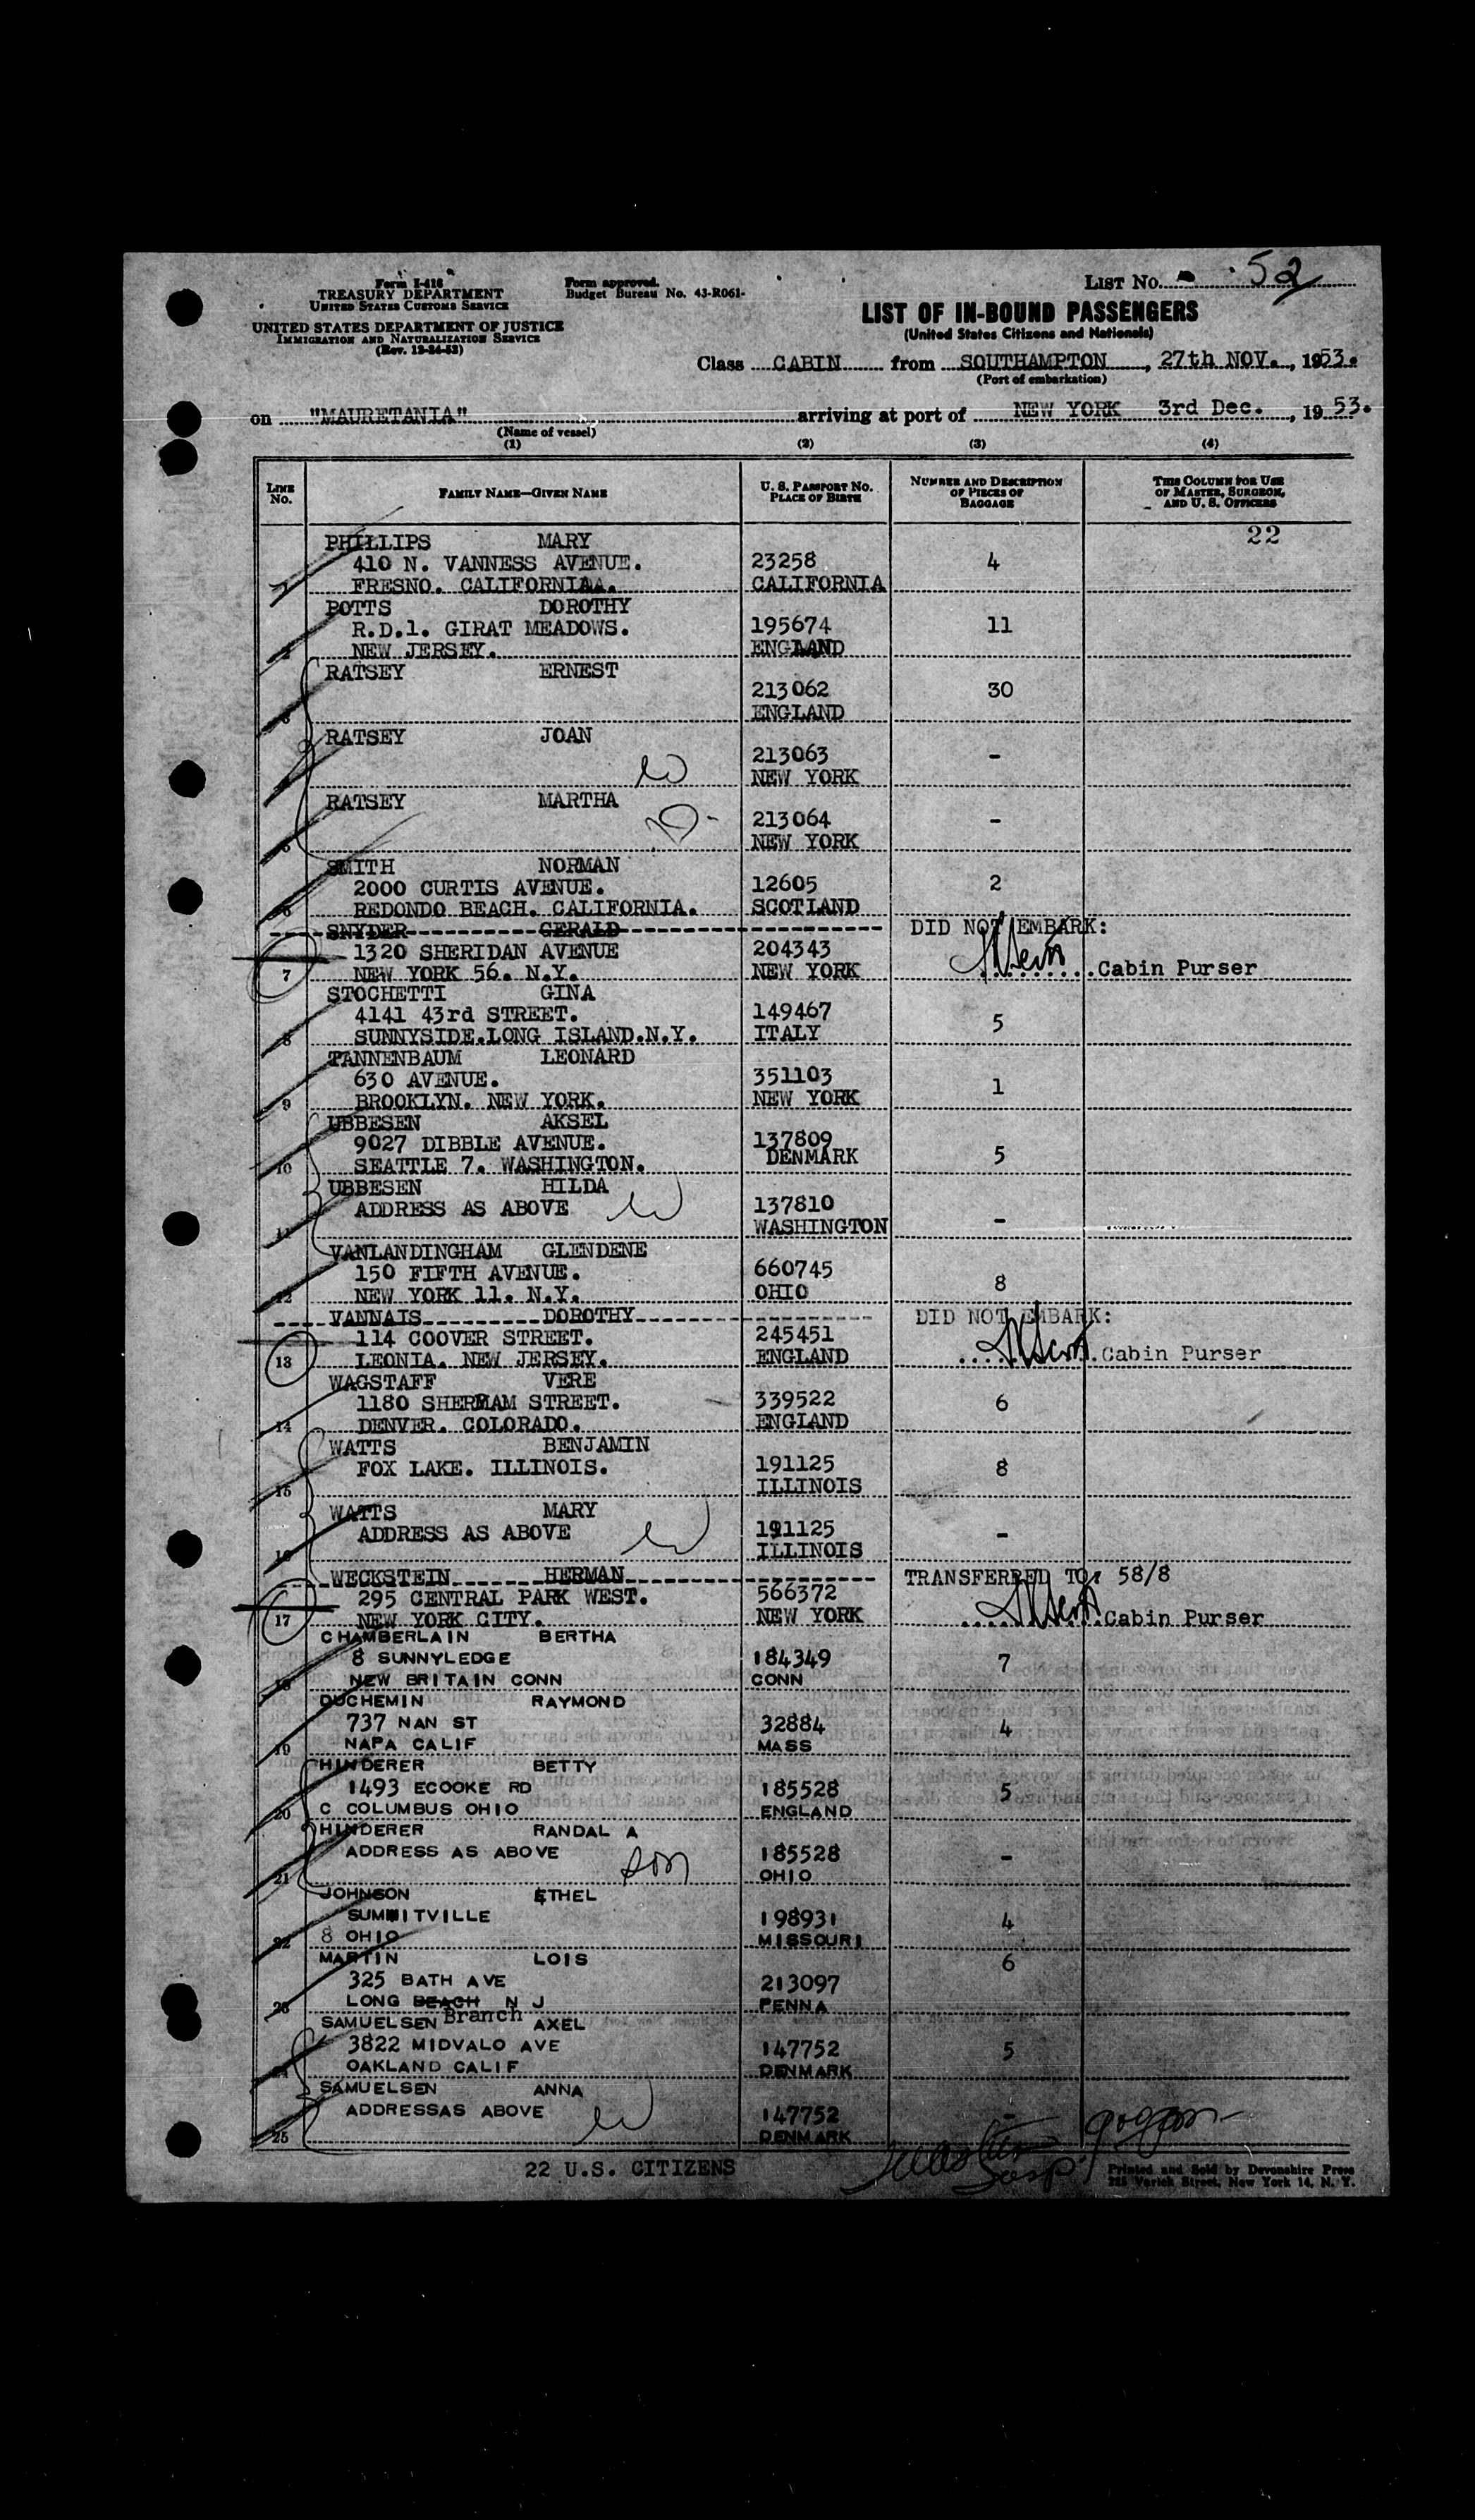 Form I-418
TREASURY DEPARTMENT
UNITED STATES CUSTOMS SERVICE
UNITED STATES DEPARTMENT OF JUSTICE
IMMIGRATION AND NATURALIZATION SERVICE
Form approved.
Budget Bureau No. 43-R061-
LIST No. 52
LIST OF IN-BOUND PASSENGERS
(United States Citizens and Nationals)
Class CABIN from SOUTHAMPTON, 27th NOV., 1953.
(Port of embarkation)
on "MAURETANIA" arriving at port of NEW YORK 3rd Dec., 1953.
(Name of vessel)
(1) (2) (3) (4)
LINE No. FAMILY NAME—GIVEN NAME U. S. PASSPORT NO. PLACE OF BIRTH NUMBER AND DESCRIPTION OF PIECES OF BAGGAGE THIS COLUMN FOR USE OF MASTER, SURGEON, AND U. S. OFFICERS
22
PHILLIPS MARY
410 N. VANNESS AVENUE. 23258 4
1 FRESNO. CALIFORNIAA. CALIFORNIA
POTTS DOROTHY
R.D.1. GIRAT MEADOWS. 195674 11
2 NEW JERSEY. ENGLAND
RATSEY ERNEST
213062 30
3 ENGLAND
RATSEY JOAN
213063 -
4 W NEW YORK
RATSEY MARTHA
D. 213064 -
5 NEW YORK
SMITH NORMAN
2000 CURTIS AVENUE. 12605 2
6 REDONDO BEACH. CALIFORNIA. SCOTLAND
SNYDER GERALD DID NOT EMBARK:
1320 SHERIDAN AVENUE 204343
7 NEW YORK 56. N.Y. NEW YORK Cabin Purser
STOCHETTI GINA
4141 43rd STREET. 149467 5
8 SUNNYSIDE.LONG ISLAND.N.Y. ITALY
TANNENBAUM LEONARD
630 AVENUE. 351103 1
9 BROOKLYN. NEW YORK. NEW YORK
UBBESEN AKSEL
9027 DIBBLE AVENUE. 137809
10 SEATTLE 7. WASHINGTON. DENMARK 5
UBBESEN HILDA
ADDRESS AS ABOVE W 137810
11 WASHINGTON -
VANLANDINGHAM GLENDENE
150 FIFTH AVENUE. 660745 8
12 NEW YORK 11. N.Y. OHIO
VANNAIS DOROTHY DID NOT EMBARK:
114 COOVER STREET. 245451
13 LEONIA. NEW JERSEY. ENGLAND Cabin Purser
WAGSTAFF VERE
1180 SHERMAM STREET. 339522 6
14 DENVER. COLORADO. ENGLAND
WATTS BENJAMIN
FOX LAKE. ILLINOIS. 191125 8
15 ILLINOIS
WATTS MARY
ADDRESS AS ABOVE W 191125 -
16 ILLINOIS
WECKSTEIN HERMAN TRANSFERRED TO: 58/8
295 CENTRAL PARK WEST. 566372
17 NEW YORK CITY. NEW YORK Cabin Purser
CHAMBERLAIN BERTHA
8 SUNNYLEDGE 184349 7
18 NEW BRITAIN CONN CONN
DUCHEMIN RAYMOND
737 NAN ST 32884 4
19 NAPA CALIF MASS
HINDERER BETTY
1493 ECOOKE RD 185528 5
20 C COLUMBUS OHIO ENGLAND
HINDERER RANDAL A
ADDRESS AS ABOVE son 185528 -
21 OHIO
JOHNSON ETHEL
SUMMITVILLE 198931 4
22 8 OHIO MISSOURI
MARTIN LOIS 6
325 BATH AVE 213097
23 LONG BEACH N J PENNA
Branch
SAMUELSEN AXEL
3822 MIDVALO AVE 147752 5
24 OAKLAND CALIF DENMARK
SAMUELSEN ANNA
ADDRESSAS ABOVE W 147752 -
25 DENMARK
22 U.S. CITIZENS
Printed and Sold by Devonshire Press
225 Varick Street, New York 14, N. Y.